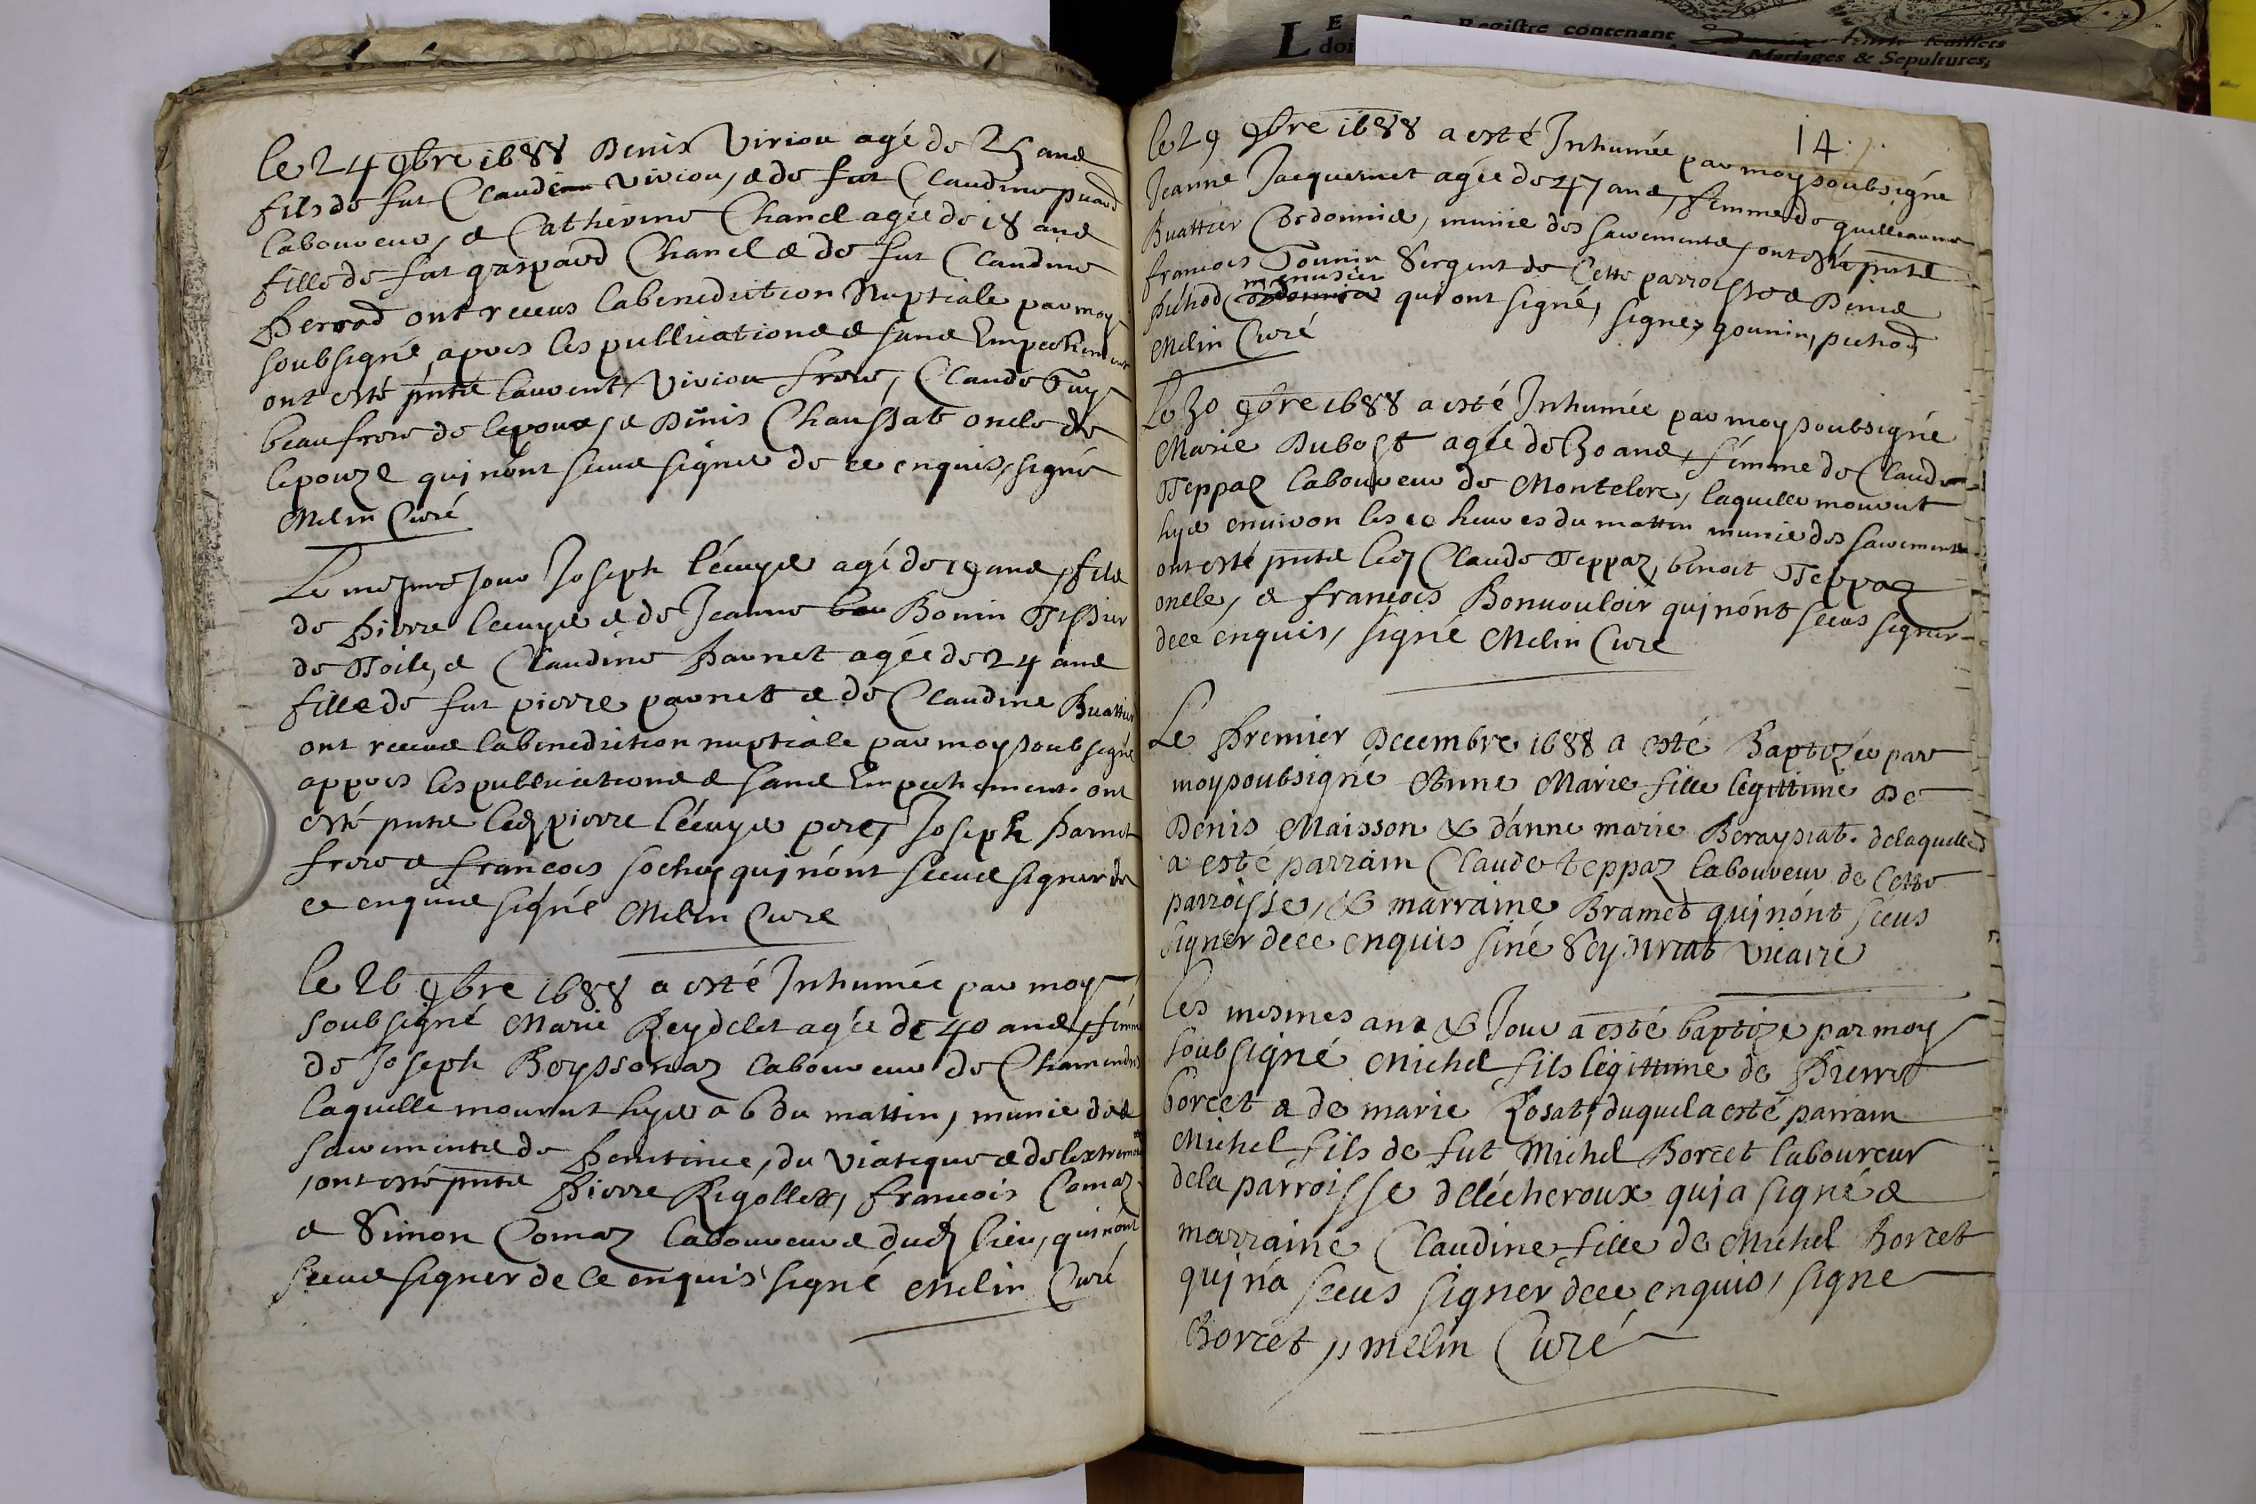 le 24 9bre 1688 Denis Viriou agé de 25 ans
fils de fut Claude Viriou, & de fut Claudine
laboureur, & Catherine Chanel agée de 18 ans
fille de fut gaspard Chanel & de fut Claudine
Perrad ont receus la benediction Nuptiale par moy
soubsigné apres les publications & sans Empechement
ont esté pnts laurent Viriou frere, Claude Guy
beaufrere de lepoux, & Denis Chaussat oncle de
lepouze qui n'ont sceus signer de ce enquis, signé
Melin Curé
Le mesme Jour Joseph lécuye agé de 19 ans, fils
de Pierre lecuye & de Jeanne Bonin Tissier
de Toile, & Claudine Parnet agée de 24 ans
fille de fut pierre parnet & de Claudine Buattier
ont receus la benediction nuptiale par moy soubsigné
appres les publications & sans Empechement. ont
esté pnts led pierre lécuye pere, Joseph Parnet
frere & francois sochay qui n'ont sceus signer de
ce enquis signé Melin Curé
le 26 9bre 1688 a esté Inhumée par moy
soubsigné Marie Reydelet agée de 40 ans, femme
de Joseph Beyssonaz laboureur de
laquelle mourut hyer a 6 du mattin, munie des
sacrements de Penitence, du Viatique & de lextremonction
, ont esté pnts Pierre Rigollet, francois Comaz
& Simon Comaz laboureurs dud lieu, qui n'ont
sceus signer de ce enquis signé Melin Curé
14.
le 29 9bre 1688 a esté Inhumée par moy soubsigné
Jeanne Jacquemet agée de 47 ans, femme de guilleaume
Buattier Cordonnier, munie des sacrements, ont esté pnts
francois Gounin Sergent de Cette parroisse & Denis
menusier
Pichod Cordonnier qui ont signé, signez gounin, pichod
Melin Curé
Le 30 9bre 1688 a esté Inhumée par moy soubsigné
Marie Dubost agée de 30 ans, femme de Claude
Teppaz laboureur de Montelere, laquelle mourut
hyer environ les 10 heures du mattin munie des sacrements
ont esté pnts led Claude Teppaz, benoit Teppaz
oncle, & francois Bonvouloir qui n'ont sceus signer
dece enquis, signé Melin Curé
Le Premier Decembre 1688 a esté Baptizée par
moy soubsigné Anne Marie fille legittime De
Denis Maisson & d'anne marie Beraysiat. delaquelle
a esté parrain Claude teppaz laboureur de Cette
parroisse, & marraine Bramet qui n'ont sceus
signer dece enquis siné Seysiriat vicaire
Les mesmes an & Jour a esté baptizé par moy
soubsigné Michel fils legittime de Pierre
borcet & de marie Rosat, duquel a esté parrain
Michel fils de fut Michel Borcet laboureur
dela parroisse delécheroux qui a signé &
marraine Claudine fille de Michel Borcet
qui n'a sceus signer dece enquis, signe
Borcet, melin Curé
Registre contenant
feuillets
Mariages & Sepultures;